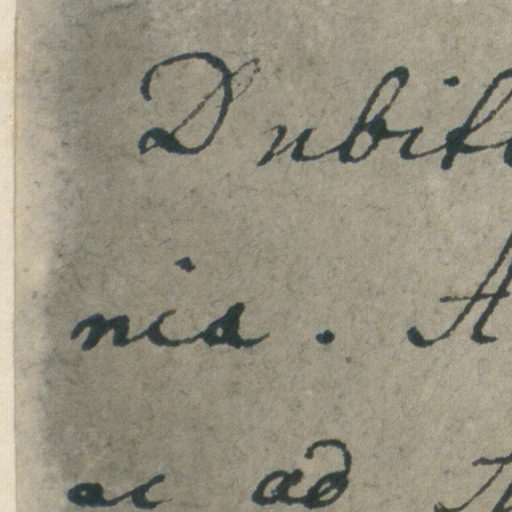 Dubit
nis. A
ac ad